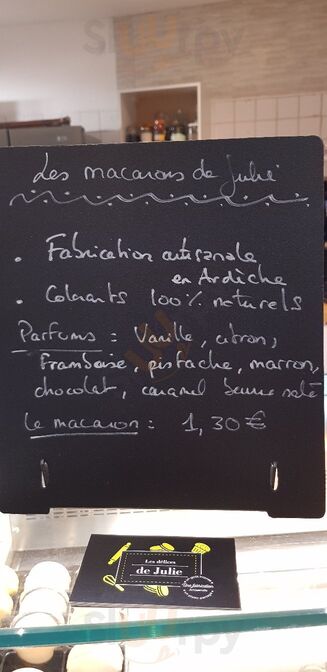 Les macarons de Julie
• Fabrication artisanale
en Ardèche
• Colorants 100% naturels
Parfums : Vanille, citron,
Framboise, pistache, marron,
chocolat, caramel beurre salé
Le macaron : 1,30 €
Les délices
de Julie
Une fabrication
Artisanale